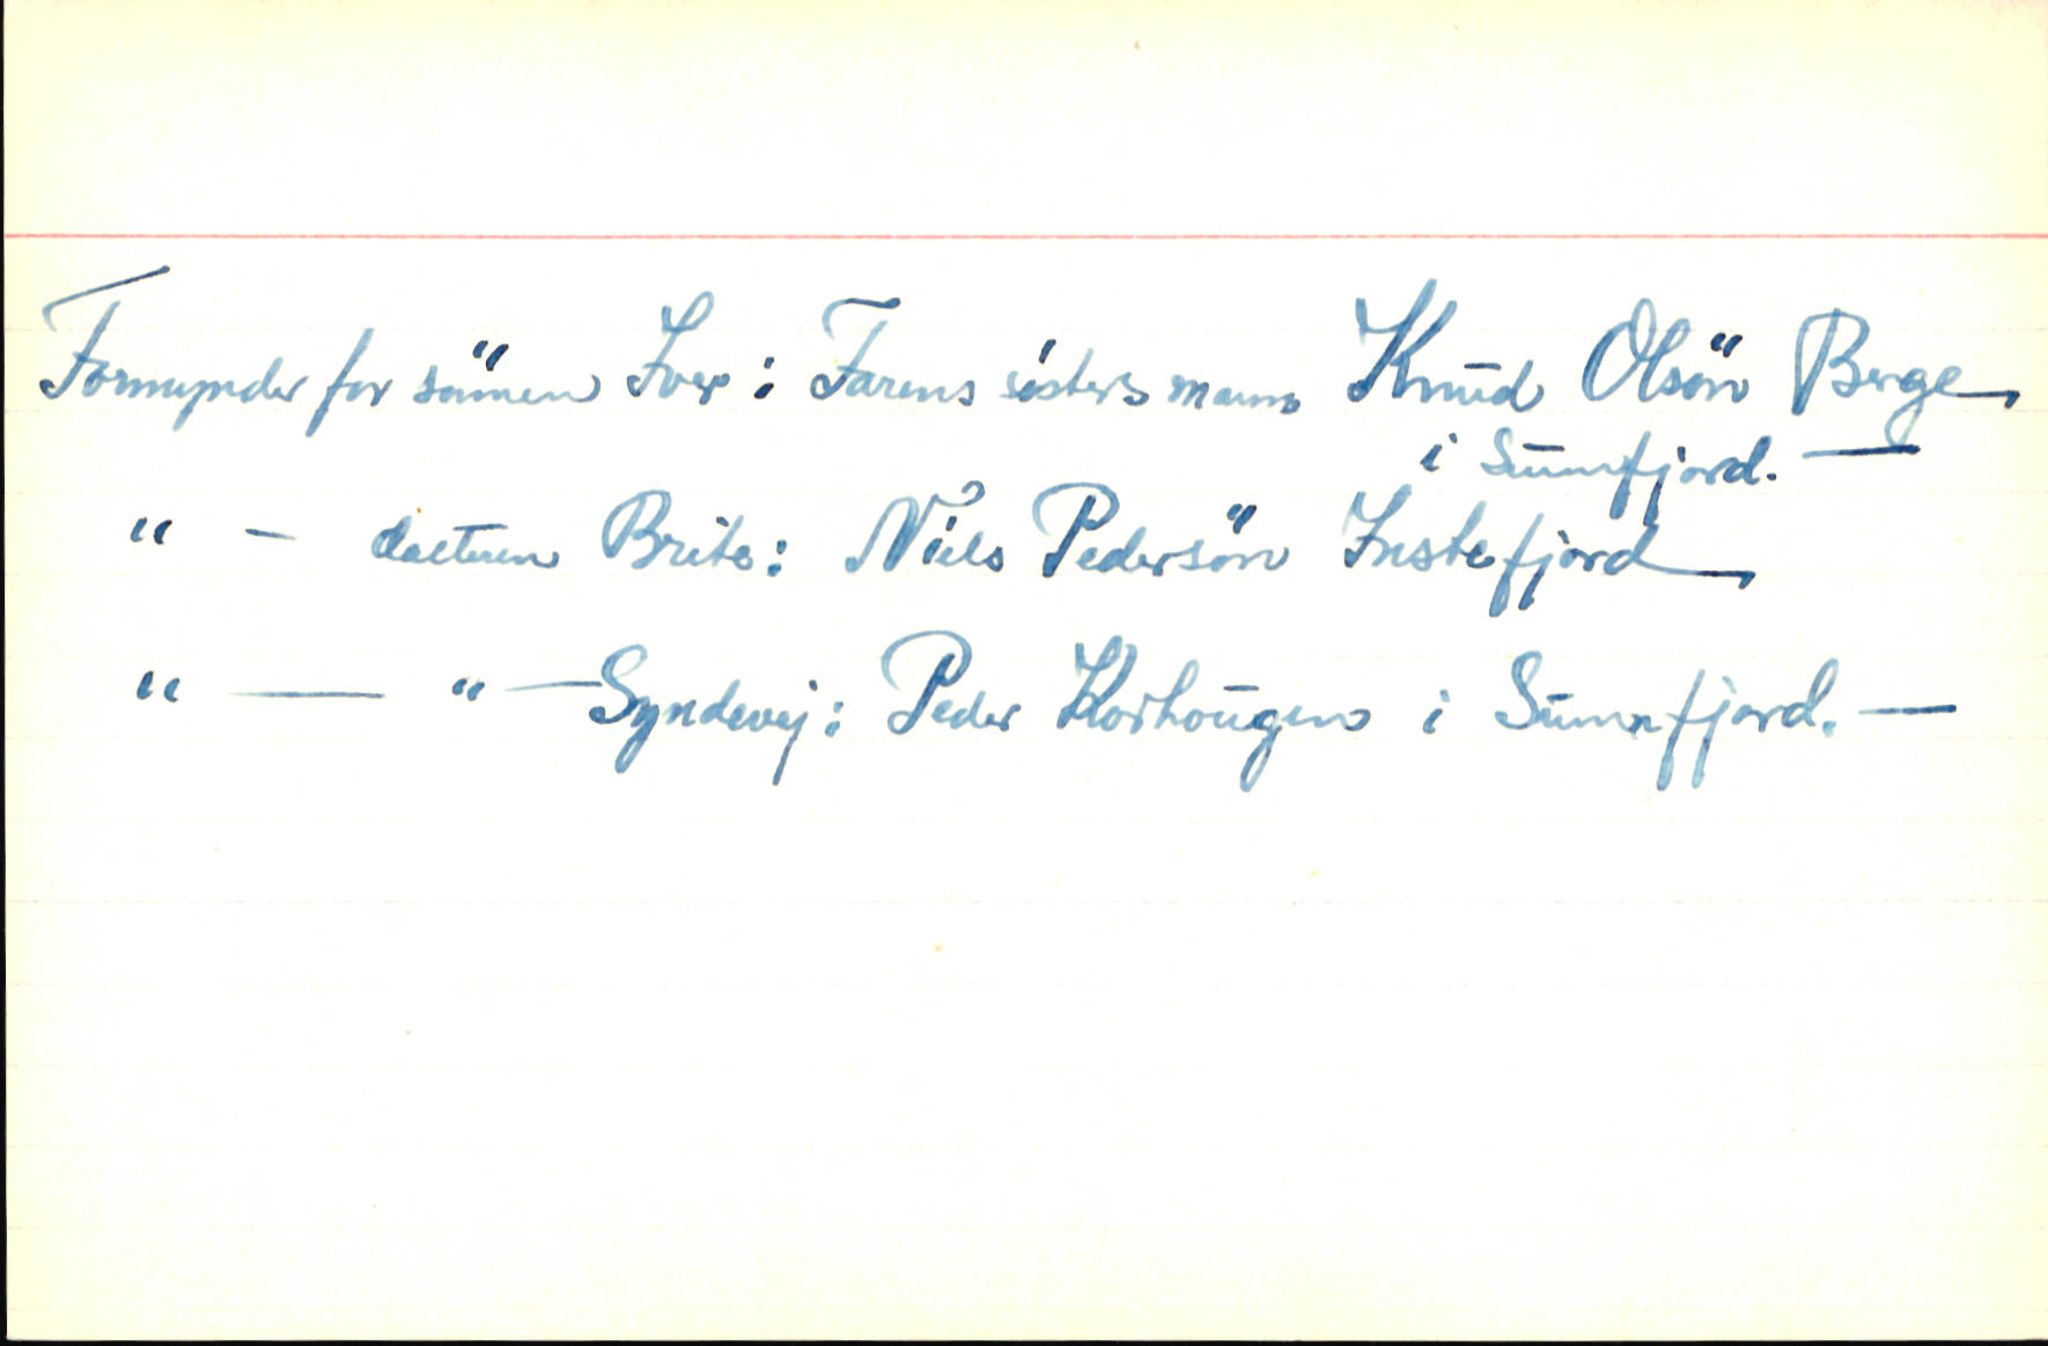 Formynder for sönnen Iver : Farens sösters mann Knud Olsön Berge
i Sunnfjord. —
" – datteren Brite : Niels Pedersön Instefjord
" — " — Syndevej : Peder Korhougen i Sunnfjord. —